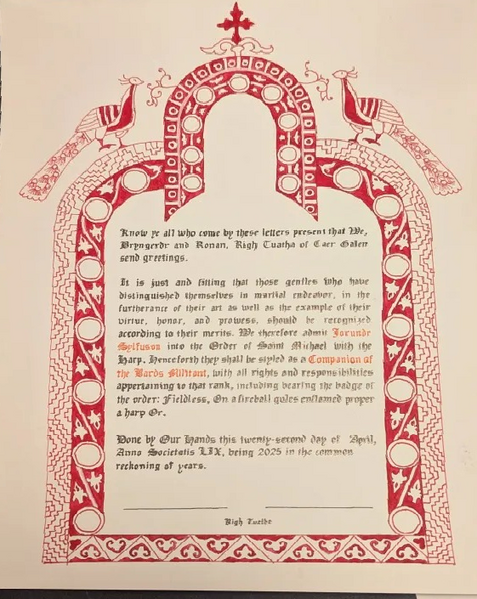 Know ye all who come by these letters present that We,
Bryngerdr and Ronan, Righ Tuatha of Caer Galen
send greetings.
It is just and fitting that those gentles who have
distinguished themselves in martial endeavor, in the
furtherance of their art as well as the example of their
virtue, honor, and prowess, should be recognized
according to their merits. We therefore admit Jorundr
Sylfuson into the Order of Saint Michael with the
Harp. Henceforth they shall be styled as a Companion of
the Bards Militant, with all rights and responsibilities
appertaining to that rank, including bearing the badge of
the order: Fieldless, On a fireball gules enflamed proper
a harp Or.
Done by Our Hands this twenty-second day of April,
Anno Societatis LIX, being 2025 in the common
reckoning of years.
Righ Tuathe